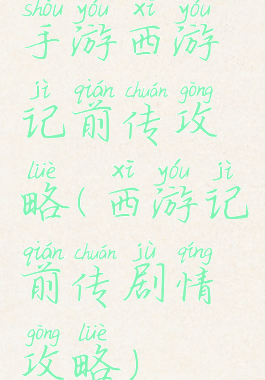 shǒu yóu xī yóu
手游西游
jì qián chuán gōng
记前传攻
lüè xī yóu jì
略(西游记
qián chuán jù qíng
前传剧情
gōng lüè
攻略)